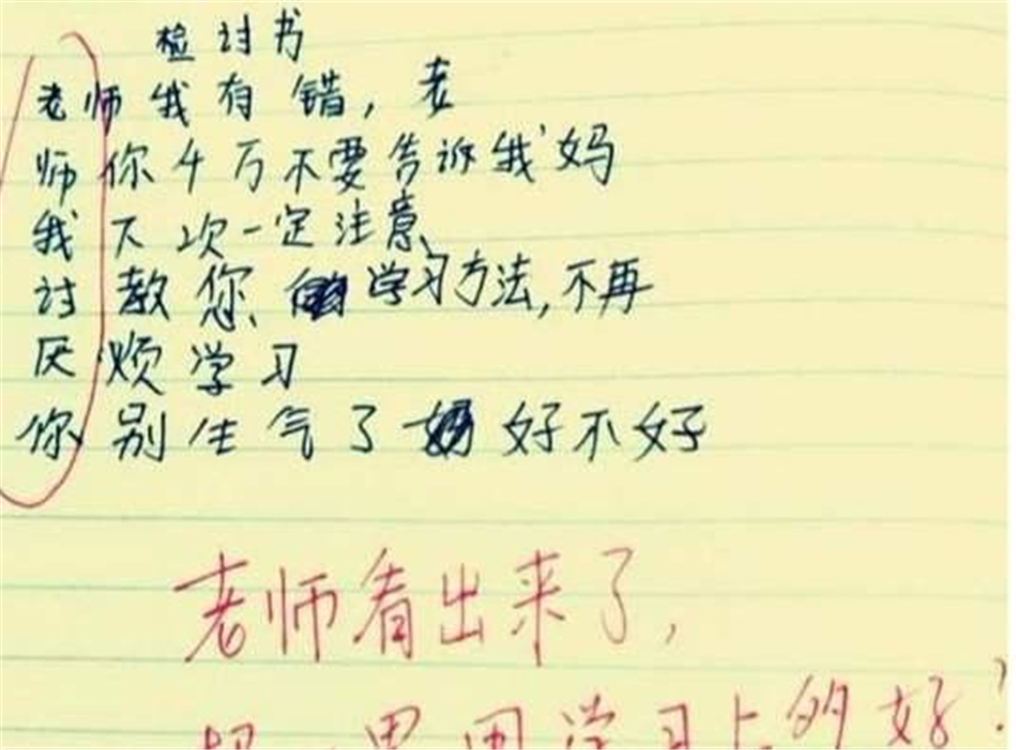 检讨书
老师我有错，老
师你千万不要告诉我妈
我下次一定注意、
讨教您、学习方法,不再
厌烦学习
你别生气了 好不好
老师看出来了，
思用学习上的好！